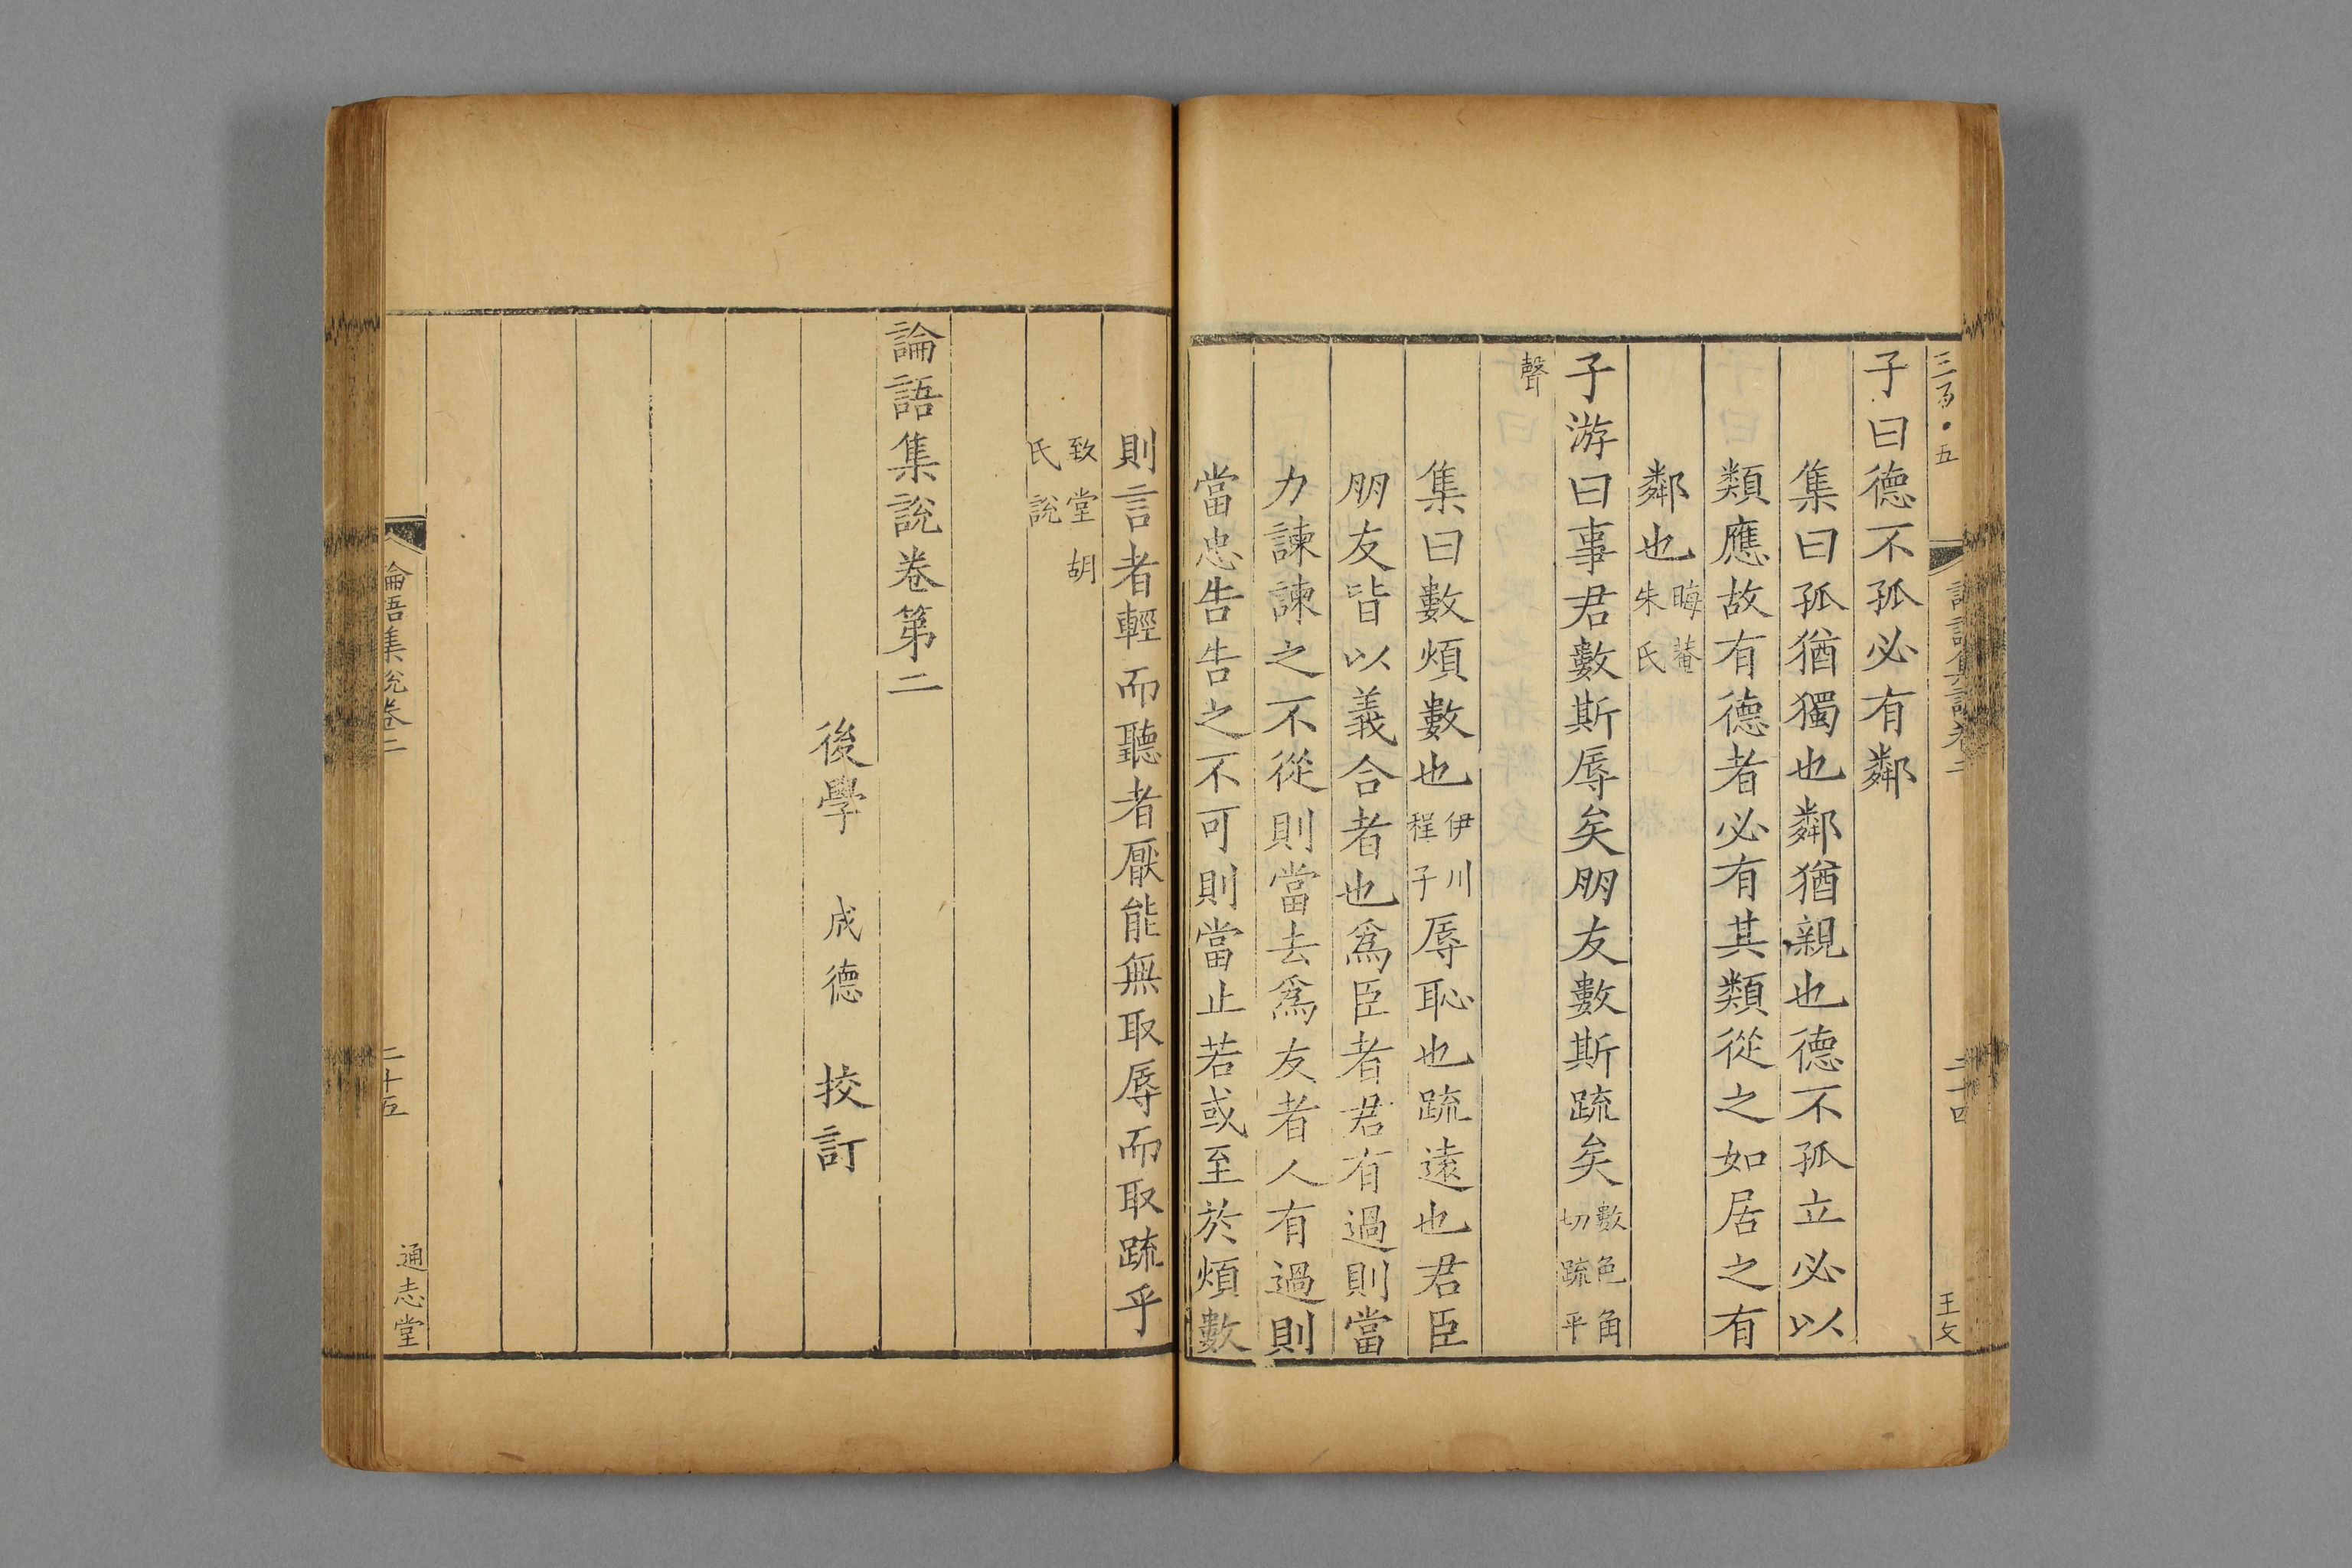 子曰德不孤必有鄰
集曰孤猶獨也鄰猶親也德不孤立必以
類應故有德者必有其類從之如居之有
鄰也晦菴朱氏
子游曰事君數斯辱矣朋友數斯疏矣數色角切疏平
聲
集曰數煩數也伊川程子辱恥也疏遠也君臣
朋友皆以義合者也爲臣者君有過則當
力諫諫之不從則當去爲友者人有過則
當忠告告之不可則當止若或至於煩數
則言者輕而聽者厭能無取辱而取疏乎
致堂胡氏說
論語集説卷第二
後學 成德 挍訂
論語集說卷二
二十五
通志堂
二十四
王文